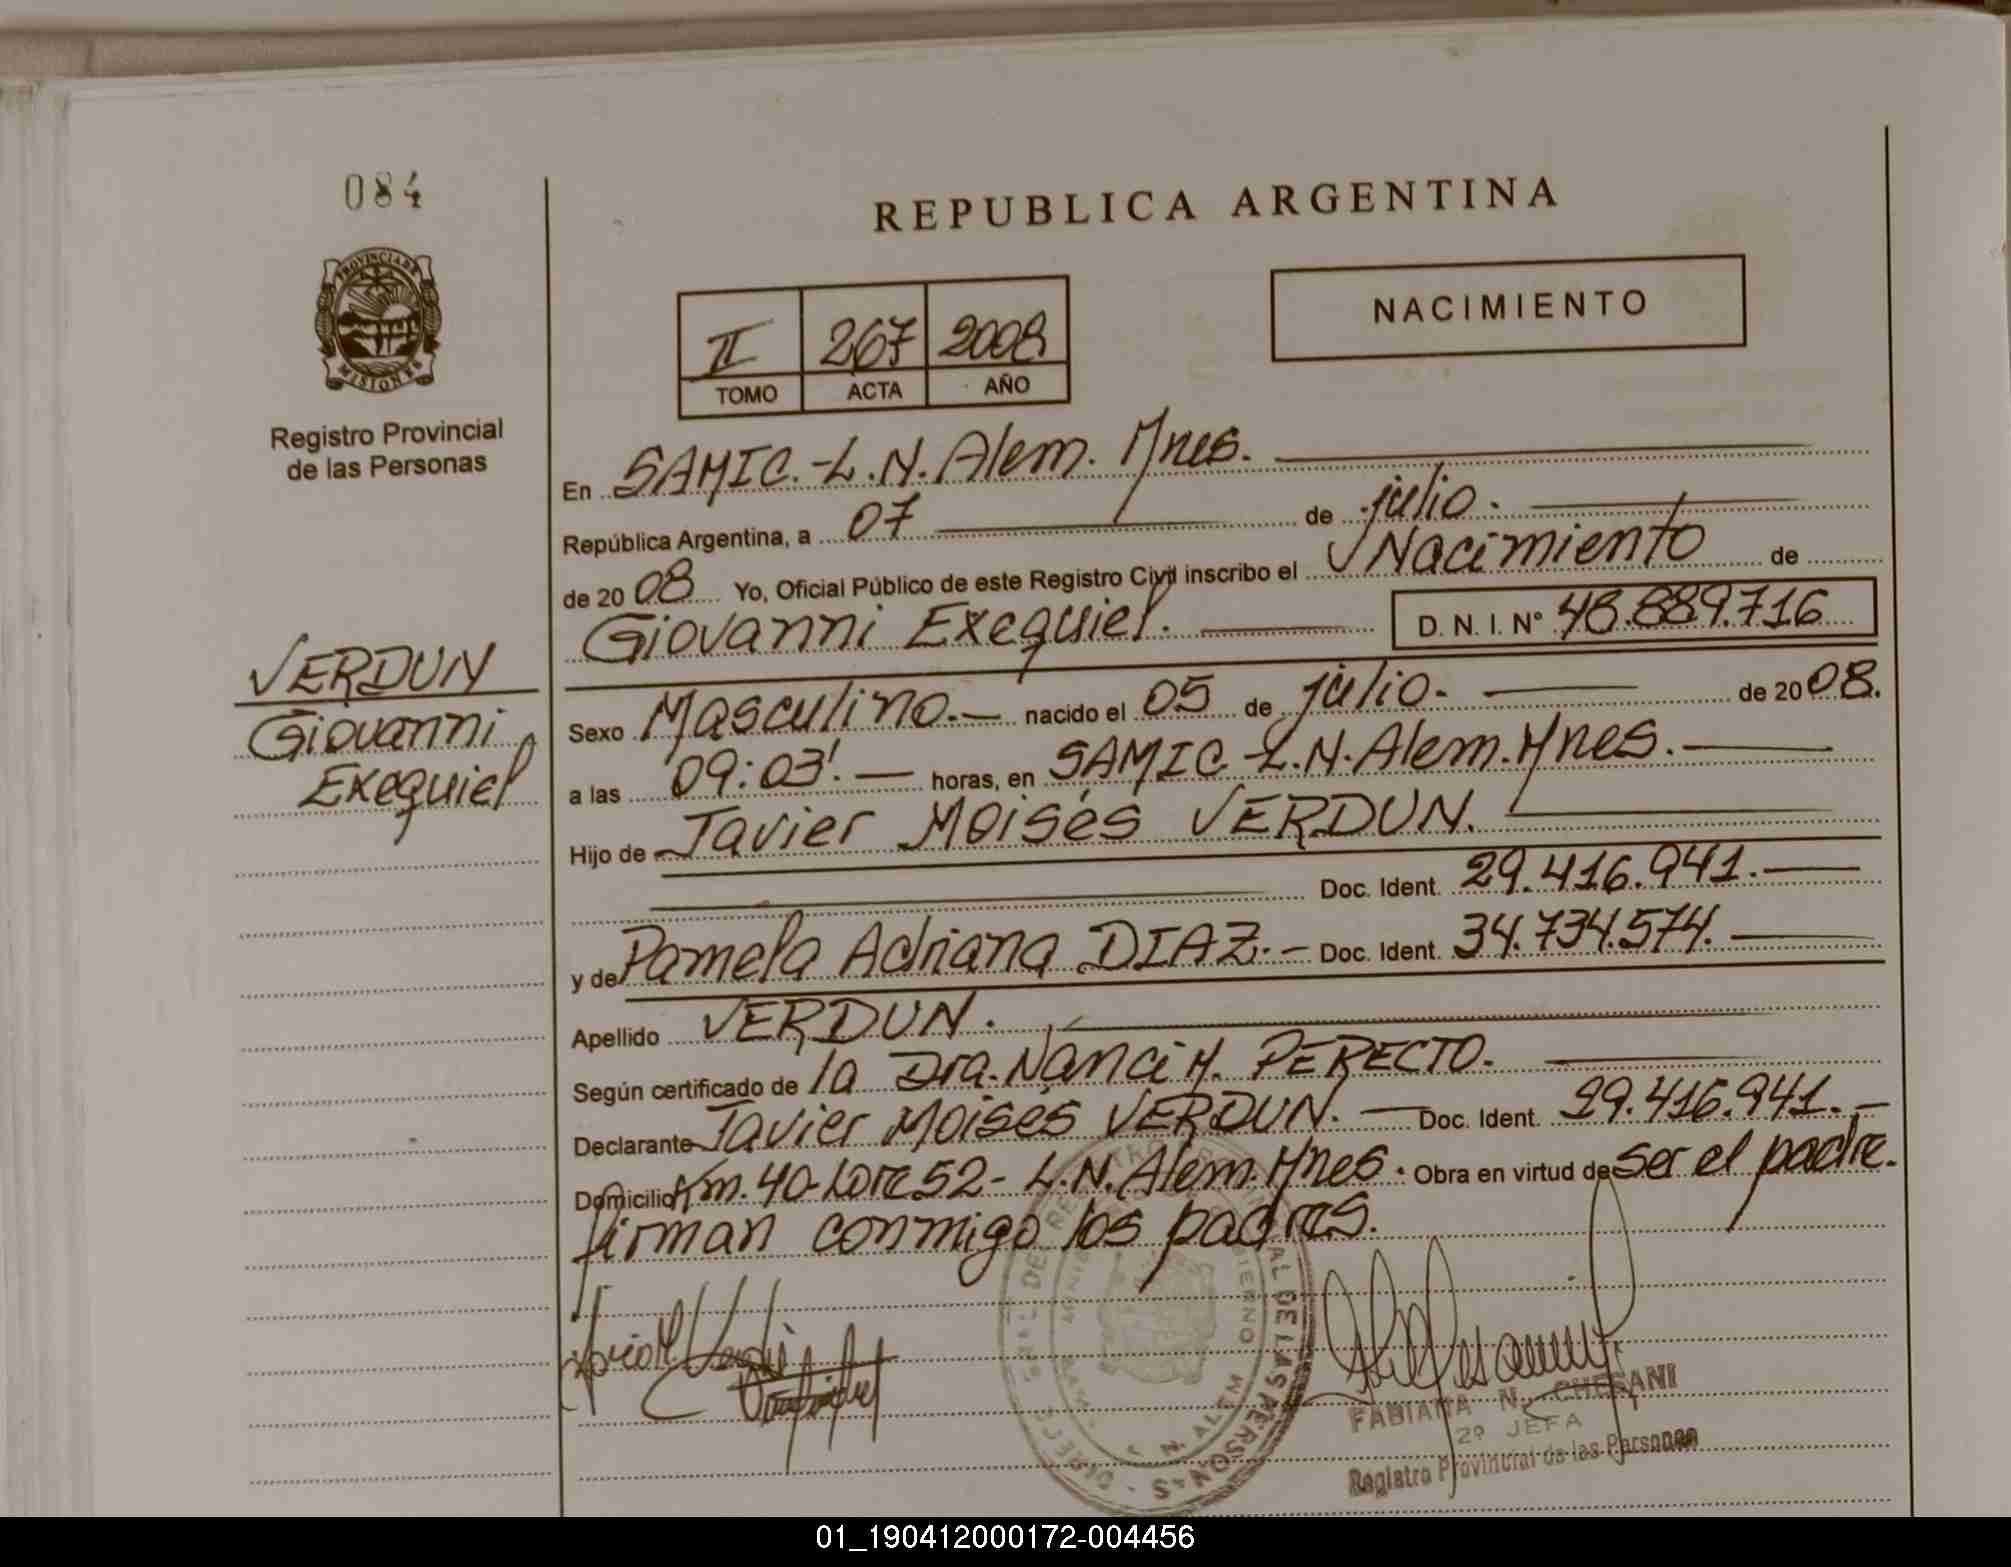 084
REPUBLICA ARGENTINA
PROVINCIA DE
MISIONES
Registro Provincial
de las Personas
NACIMIENTO
II 267 2008
TOMO ACTA AÑO
En SAMIC.-L.N.Alem. Mnes.
República Argentina, a 07 de julio.
de 20 08 Yo, Oficial Público de este Registro Civil inscribo el Nacimiento de
Giovanni Exequiel. D. N. I. Nº 48.889.716
VERDUN
Giovanni
Exequiel
Sexo Masculino.- nacido el 05 de julio.- de 20 08.
a las 09:03'.- horas, en SAMIC-L.N.Alem.Mnes.-
Hijo de Javier Moisés VERDUN.
Doc. Ident. 29.416.941.-
y de Pamela Adriana DIAZ.- Doc. Ident. 34.734.574.
Apellido VERDUN.
Según certificado de la Dra. Nanci M. PERECTO.
Declarante Javier Moisés VERDUN.- Doc. Ident. 29.416.941.-
Domicilio Km.40-Lote 52- L.N.Alem.Mnes. Obra en virtud de ser el padre.
firman conmigo los padres.
FABIANA N. CHESANI
2º JEFA
Registro Provincial de las Personas
01_190412000172-004456